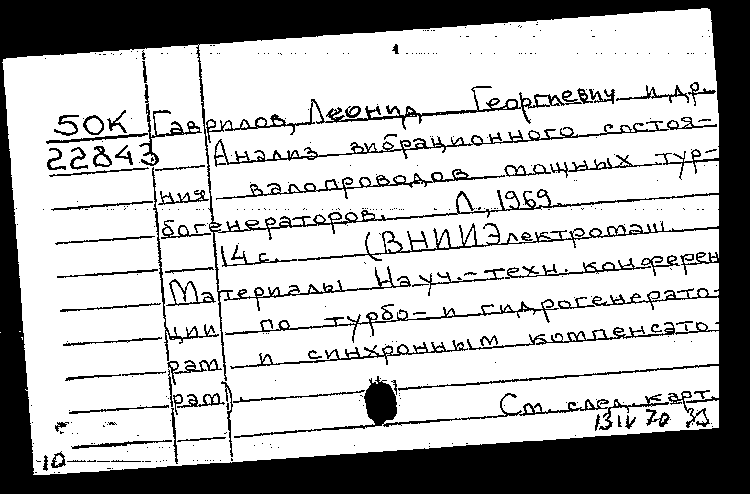 1
50К Гаврилов, Леонид Георгиевич и др.
22843 Анализ вибрационного состоя-
ния валопроводов мощных тур-
богенераторов. Л., 1969.
14 с. (ВНИИЭлектромаш.
Материалы Науч.-техн. конферен
ции по турбо- и гидрогенерато-
рам и синхронным компенсато-
рам).
См. след. карт.
13 IV 70
10